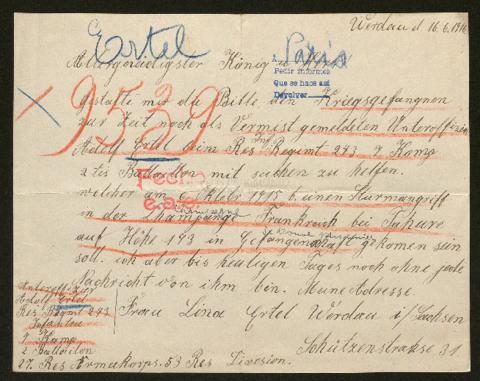 Werdau d 16.6.1916
Ertel
Paris
Allergnädigster König u. Herr
Pedir informes
Que se hace así
Devolver
9529
Gestatte mir die Bitte den Kriegsgefangnen
zur Zeit noch als Vermist gemeldten Unteroffizier
Adolf Ertel beim Res Inf Regimt 243 7 Komp
2tis Batalion mit suchen zu helfen.
Fecha
e.a.e.
welcher am 6 Oktobr 1915 b. einen Sturmangriff
in der Champange Frankreich bei Tahure
auf Höhe 193 in Gefangenschaft gekomen sein
soll. ich aber bis heutigen Tages noch ohne jede
Nachricht von ihm bin. Meine Adresse.
Frau Lina Ertel Werdau i/Sachsen
Schützenstrasse 31.
Unteroffizier
Adolf Ertel
Res Regmt 243
Infantrie
7 Komp
2. Batallion
27. Res Armeekorps. 53 Res Division.